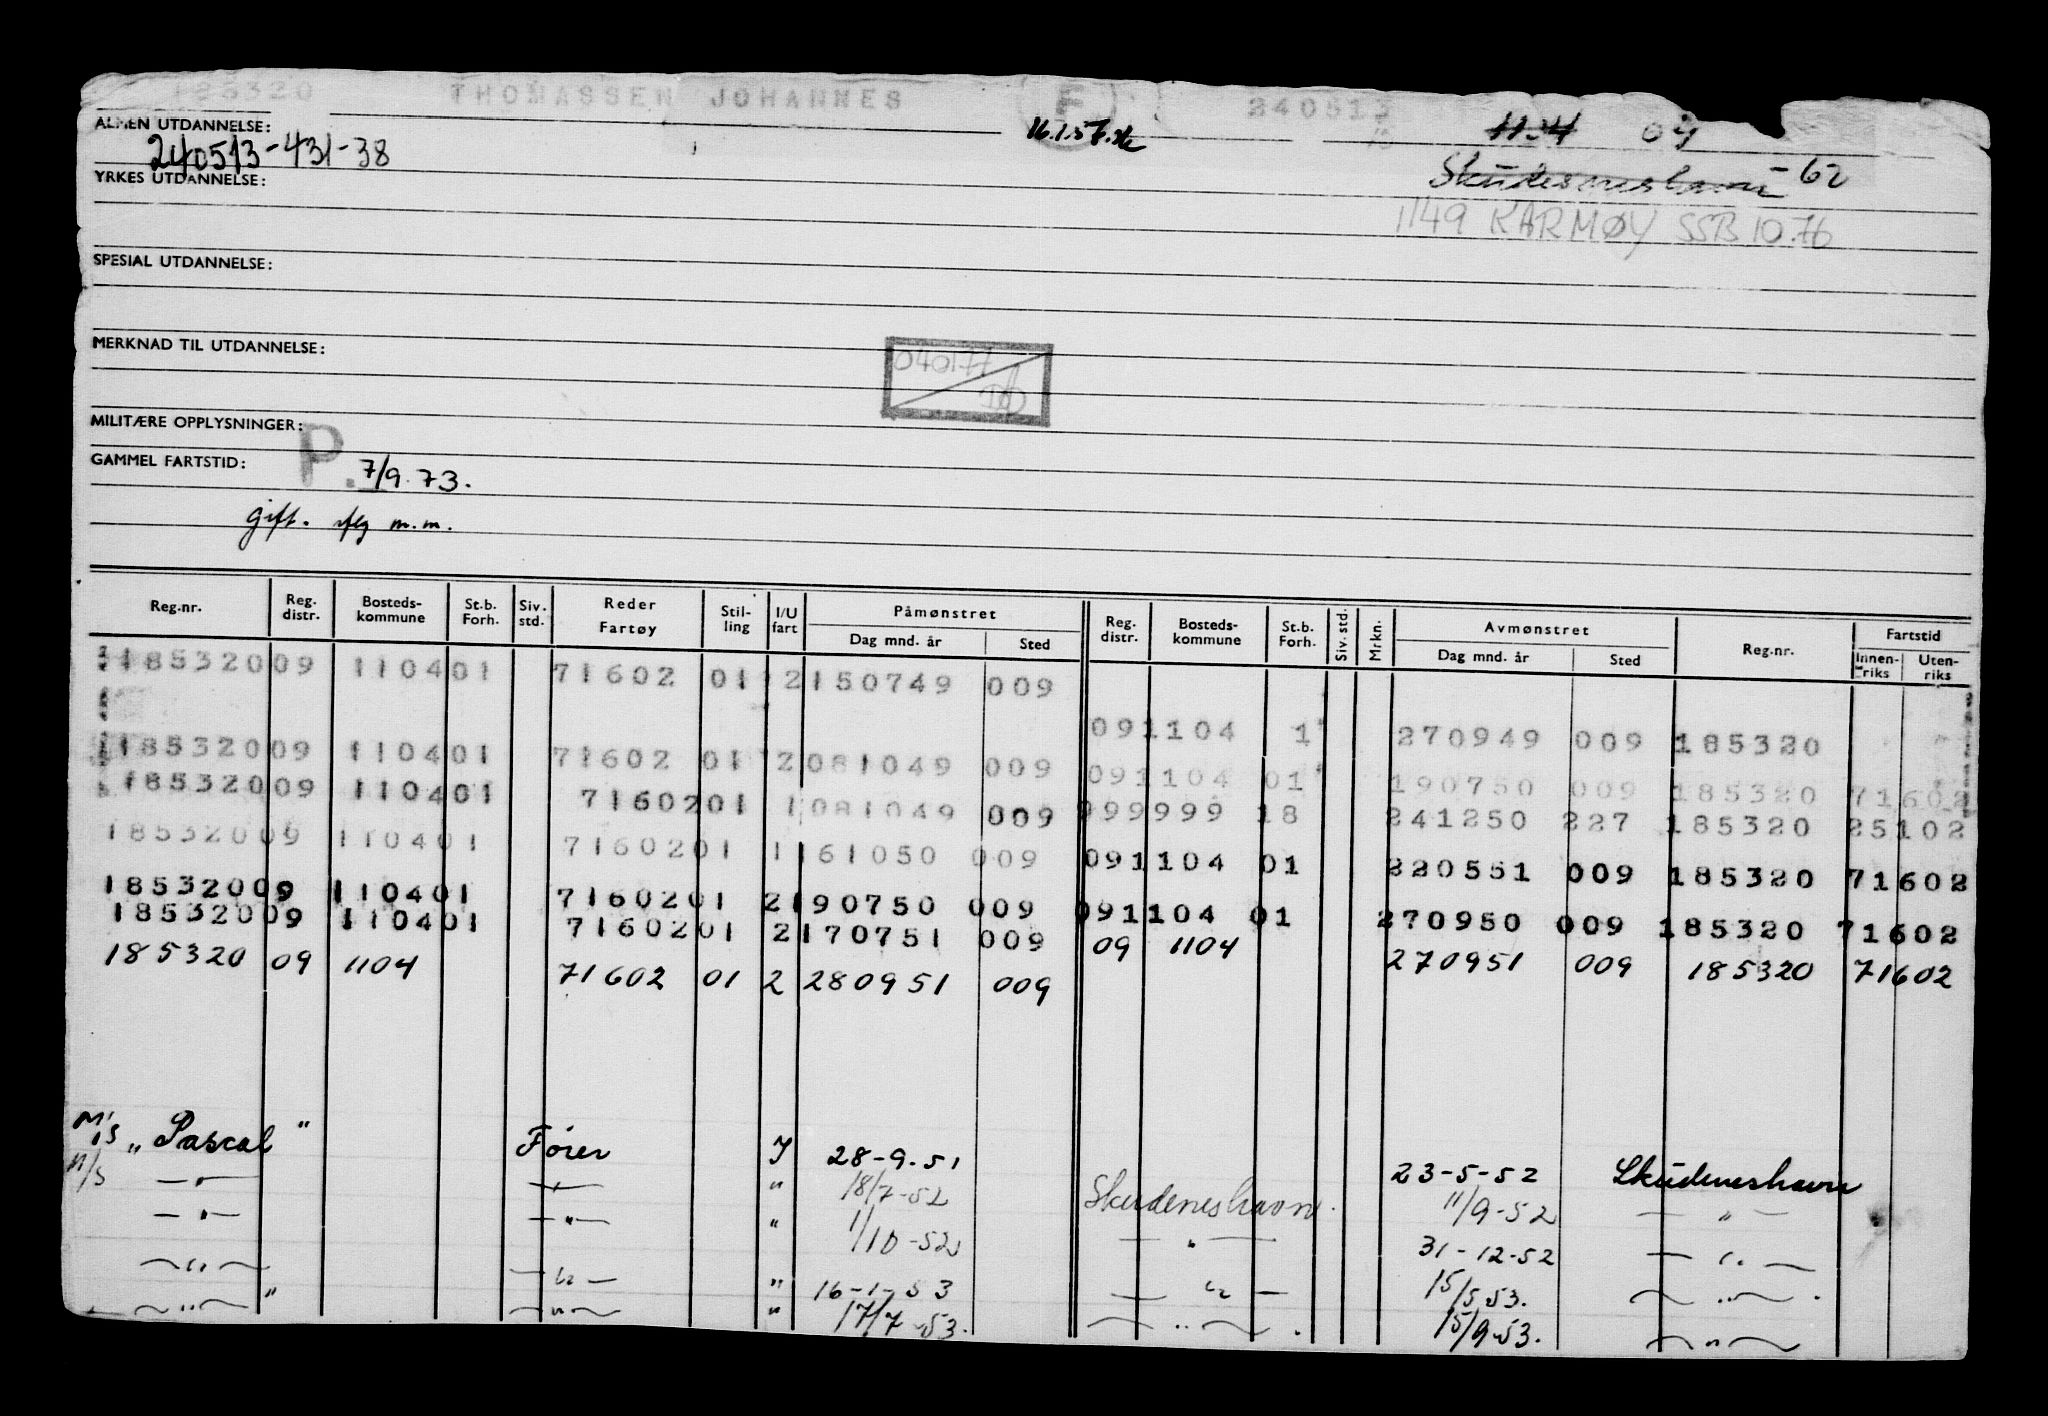 185320 THOMASSEN JOHANNES F 240513
ALMEN UTDANNELSE: 16.1.57. 11.4 09
240513-431-38
YRKES UTDANNELSE: Skudesneshavn -62
1149 KARMØY SSB 10.76
SPESIAL UTDANNELSE:
MERKNAD TIL UTDANNELSE:
040177
MILITÆRE OPPLYSNINGER:
GAMMEL FARTSTID: P. 7/9.73.
gift. m.m.
Reg.nr. Reg. distr. Bosteds- kommune St.b. Forh. Siv. std. Reder Fartøy Stil- ling I/U fart Påmønstret Dag mnd. år Sted Reg. distr. Bosteds- kommune St.b. Forh. Siv. std. Mrkn. Avmønstret Dag mnd. år Sted Reg.nr. Fartstid Innen- riks Uten- riks
185320 09 1104 01 71602 01 2 150749 009
09 1104 1 270949 009 185320
185320 09 1104 01 71602 01 2 081049 009 09 1104 01 190750 009 185320 71602
185320 09 1104 01 71602 01 1 081049 009 999999 18 241250 227 185320 25102
185320 09 1104 01 71602 01 1 161050 009 09 1104 01 220551 009 185320 71602
185320 09 1104 01 71602 01 2 190750 009 09 1104 01 270950 009 185320 71602
185320 09 1104 01 71602 01 2 170751 009 09 1104 270951 009 185320 71602
185320 09 1104 71602 01 2 280951 009
M/S „Pascal" Fører I 28-9-51 23-5-52 Skudeneshavn
M/S —"— —"— " 18/7-52 Skudeneshavn. 11/9-52 —"—
—"— —"— " 1/10-52 —"— 31-12-52 —"—
—"— —"— " 16-1-53 —"— 15/5 53. —"—.
—"— " —"— " 17/7-53. —"—. 15/9-53. —"—